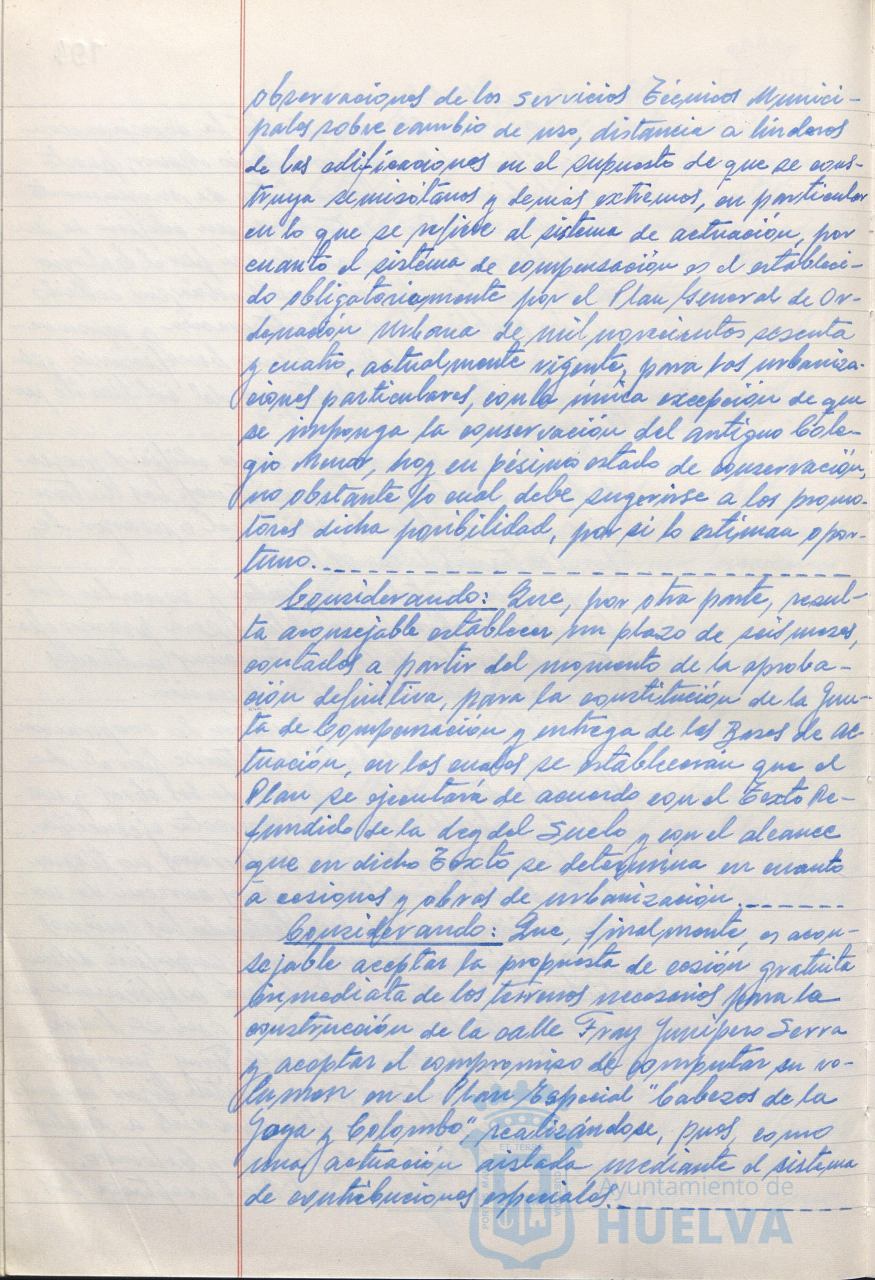 observaciones de los Servicios Técnicos Munici-
pales sobre cambio de uso, distancia a linderos
de las edificaciones en el supuesto de que se cons-
truya semisótanos y demás extremos, en particular
en lo que se refiere al sistema de actuación, por
cuanto el sistema de compensación es el estableci-
do obligatoriamente por el Plan General de Or-
denación Urbana de mil novecientos sesenta
y cuatro, actualmente vigente, para las urbaniza-
ciones particulares, con la única excepción de que
se imponga la conservación del antiguo Cole-
gio Menor, hoy en pésimo estado de conservación,
no obstante lo cual debe sugerirse a los promo-
tores dicha posibilidad, por si lo estiman opor-
tuno.
Considerando: Que, por otra parte, resul-
ta aconsejable establecer un plazo de seis meses,
contados a partir del momento de la aproba-
ción definitiva, para la constitución de la Jun-
ta de Compensación y entrega de las Bases de ac-
tuación, en las cuales se establecerán que el
Plan se ejecutará de acuerdo con el Texto Re-
fundido de la Ley del Suelo y con el alcance
que en dicho Texto se determina en cuanto
a cesiones y obras de urbanización.
Considerando: Que, finalmente, es acon-
sejable aceptar la propuesta de cesión gratuita
inmediata de los terrenos necesarios para la
construcción de la calle Fray Junípero Serra
y aceptar el compromiso de computar su vo-
lumen en el Plan Especial "Cabezos de la
Joya y Colombo", realizándose, pues, como
una actuación aislada mediante el sistema
de contribuciones especiales.
Ayuntamiento de
HUELVA